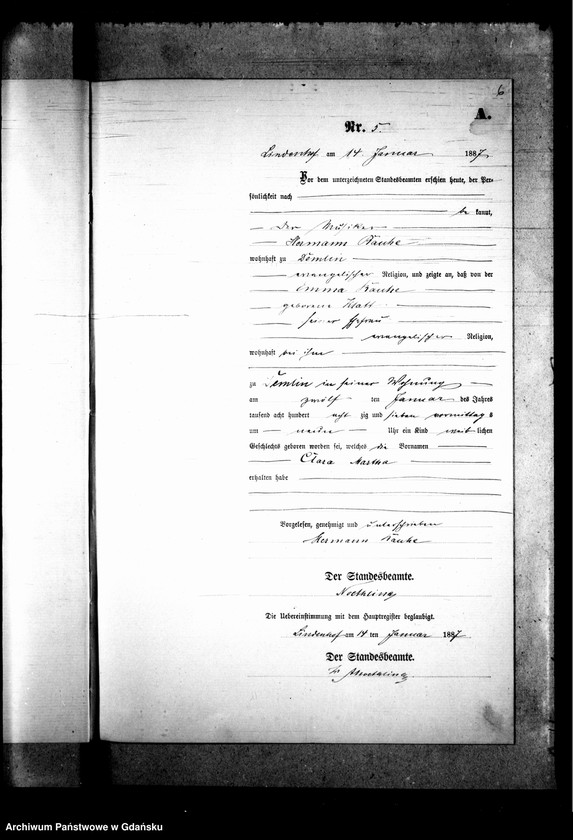 6
A.
Nr. 5.
Lindenhof am 14 Januar 1887
Vor dem unterzeichneten Standesbeamten erschien heute, der Per-
sönlichkeit nach
be kannt,
Der Musiker
Hermann
wohnhaft zu Temlin
evangelischer Religion, und zeigte an, daß von der
Emma
geborene Klatt
seiner Ehefrau
evangelischer Religion,
wohnhaft bei ihm
zu Temlin in seiner Wohnung
am zwölf ten Januar des Jahres
tausend acht hundert acht zig und sieben vormittag s
um neun Uhr ein Kind weib lichen
Geschlechts geboren worden sei, welches die Vornamen
Clara Martha
erhalten habe
Vorgelesen, genehmigt und unterschrieben
Hermann
Der Standesbeamte.
Die Uebereinstimmung mit dem Hauptregister beglaubigt.
Lindenhof am 14 ten Januar 1887
Der Standesbeamte.
Archiwum Państwowe w Gdańsku